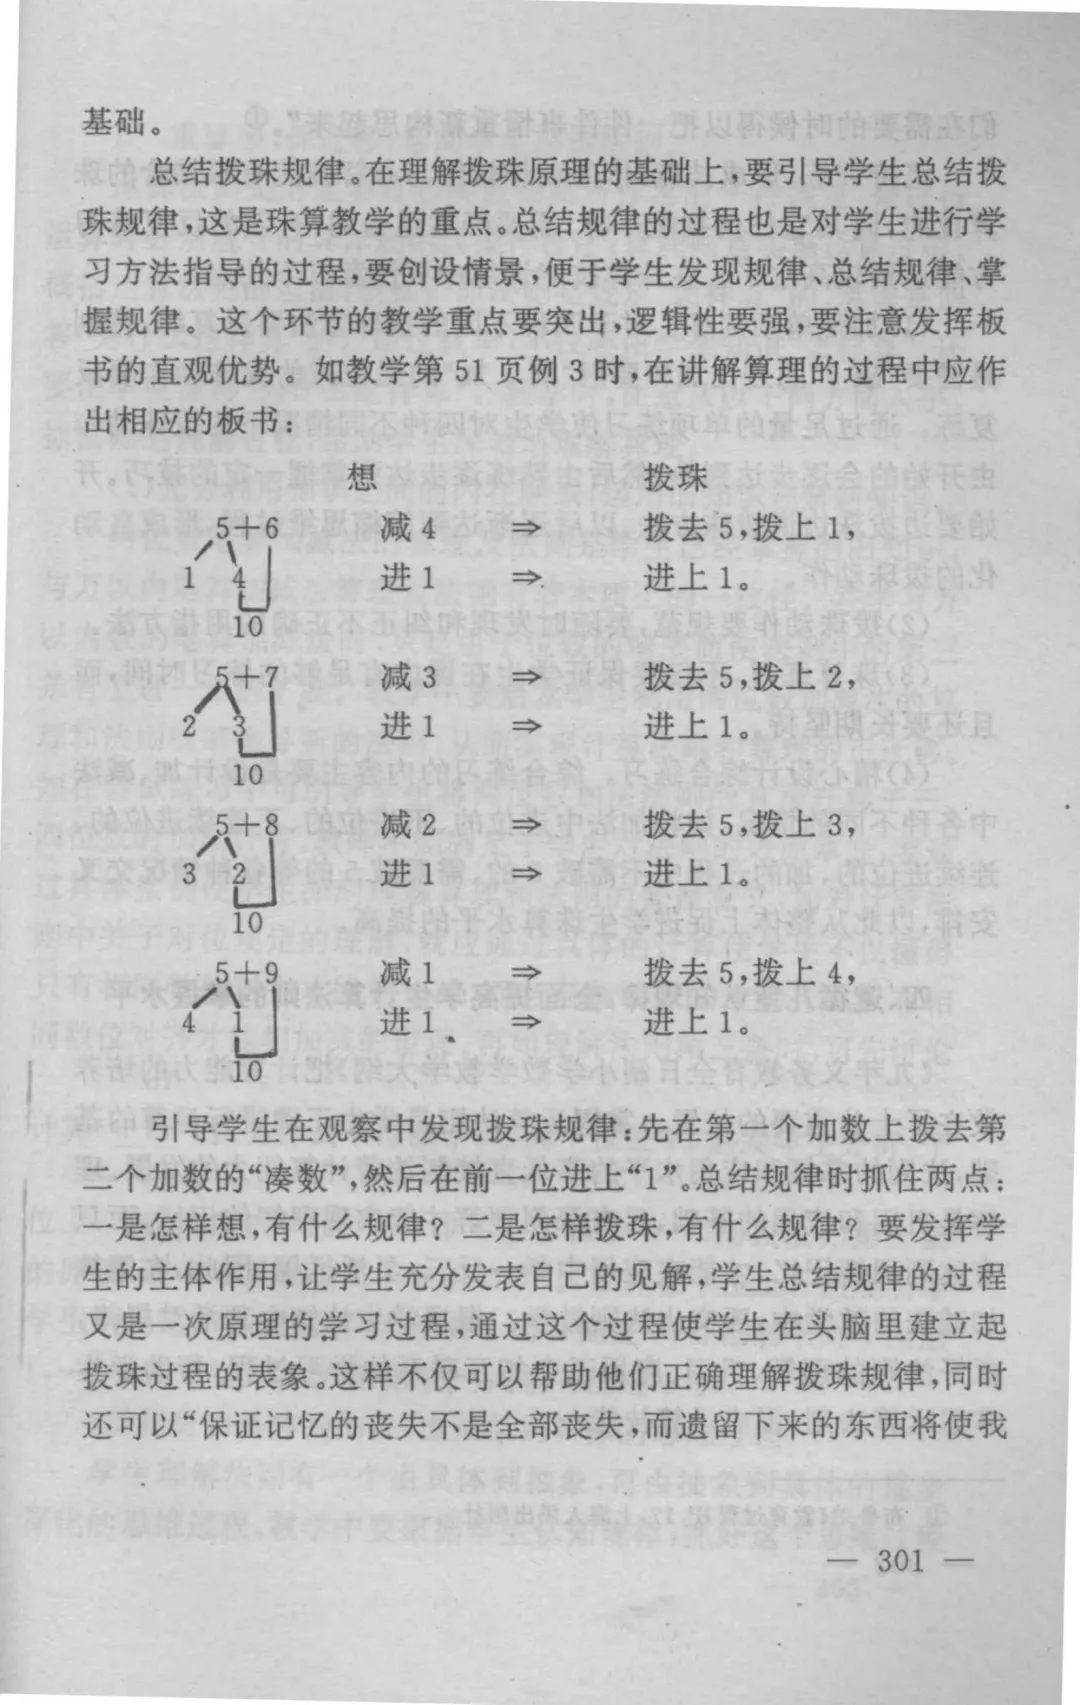 基础。
总结拨珠规律。在理解拨珠原理的基础上,要引导学生总结拨
珠规律,这是珠算教学的重点。总结规律的过程也是对学生进行学
习方法指导的过程,要创设情景,便于学生发现规律、总结规律、掌
握规律。这个环节的教学重点要突出,逻辑性要强,要注意发挥板
书的直观优势。如教学第 51 页例 3 时,在讲解算理的过程中应作
出相应的板书:
想 拨珠
5+6 减 4 ⇒ 拨去 5,拨上 1,
1 4 进 1 ⇒ 进上 1。
10
5+7 减 3 ⇒ 拨去 5,拨上 2,
2 3 进 1 ⇒ 进上 1。
10
5+8 减 2 ⇒ 拨去 5,拨上 3,
3 2 进 1 ⇒ 进上 1。
10
5+9 减 1 ⇒ 拨去 5,拨上 4,
4 1 进 1 ⇒ 进上 1。
10
引导学生在观察中发现拨珠规律:先在第一个加数上拨去第
二个加数的“凑数”,然后在前一位进上“1”。总结规律时抓住两点:
一是怎样想,有什么规律?二是怎样拨珠,有什么规律?要发挥学
生的主体作用,让学生充分发表自己的见解,学生总结规律的过程
又是一次原理的学习过程,通过这个过程使学生在头脑里建立起
拨珠过程的表象。这样不仅可以帮助他们正确理解拨珠规律,同时
还可以“保证记忆的丧失不是全部丧失,而遗留下来的东西将使我
— 301 —